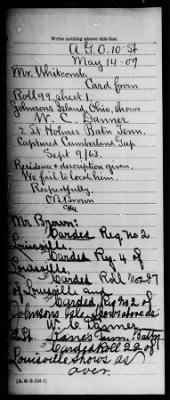 Write nothing above this line.
A.G.O. 10-St
May 14-09
Mr. Whitcomb.
Card from
Roll 99, sheet 1.
Johnsons Island, Ohio, shows
W. C. Danner
2 Lt Holmes Batn Tenn.
Captured Cumberland Gap
Sept 9/63.
Residence & description given.
We fail to locate him.
Respectfully
O B Brown
Mr Brown:
Carded Reg No 2
Louisville.
Carded Reg. 4 of
Louisville.
Carded Roll No 27
of Louisville and
Carded Reg No 2 of
Johnsons Isle, show above as
W. C. Tanner
2 Lt. Kane's Tenn. Batty
Carded Roll 22 of
Louisville shows as
over.
(A. G. O. 114-1)